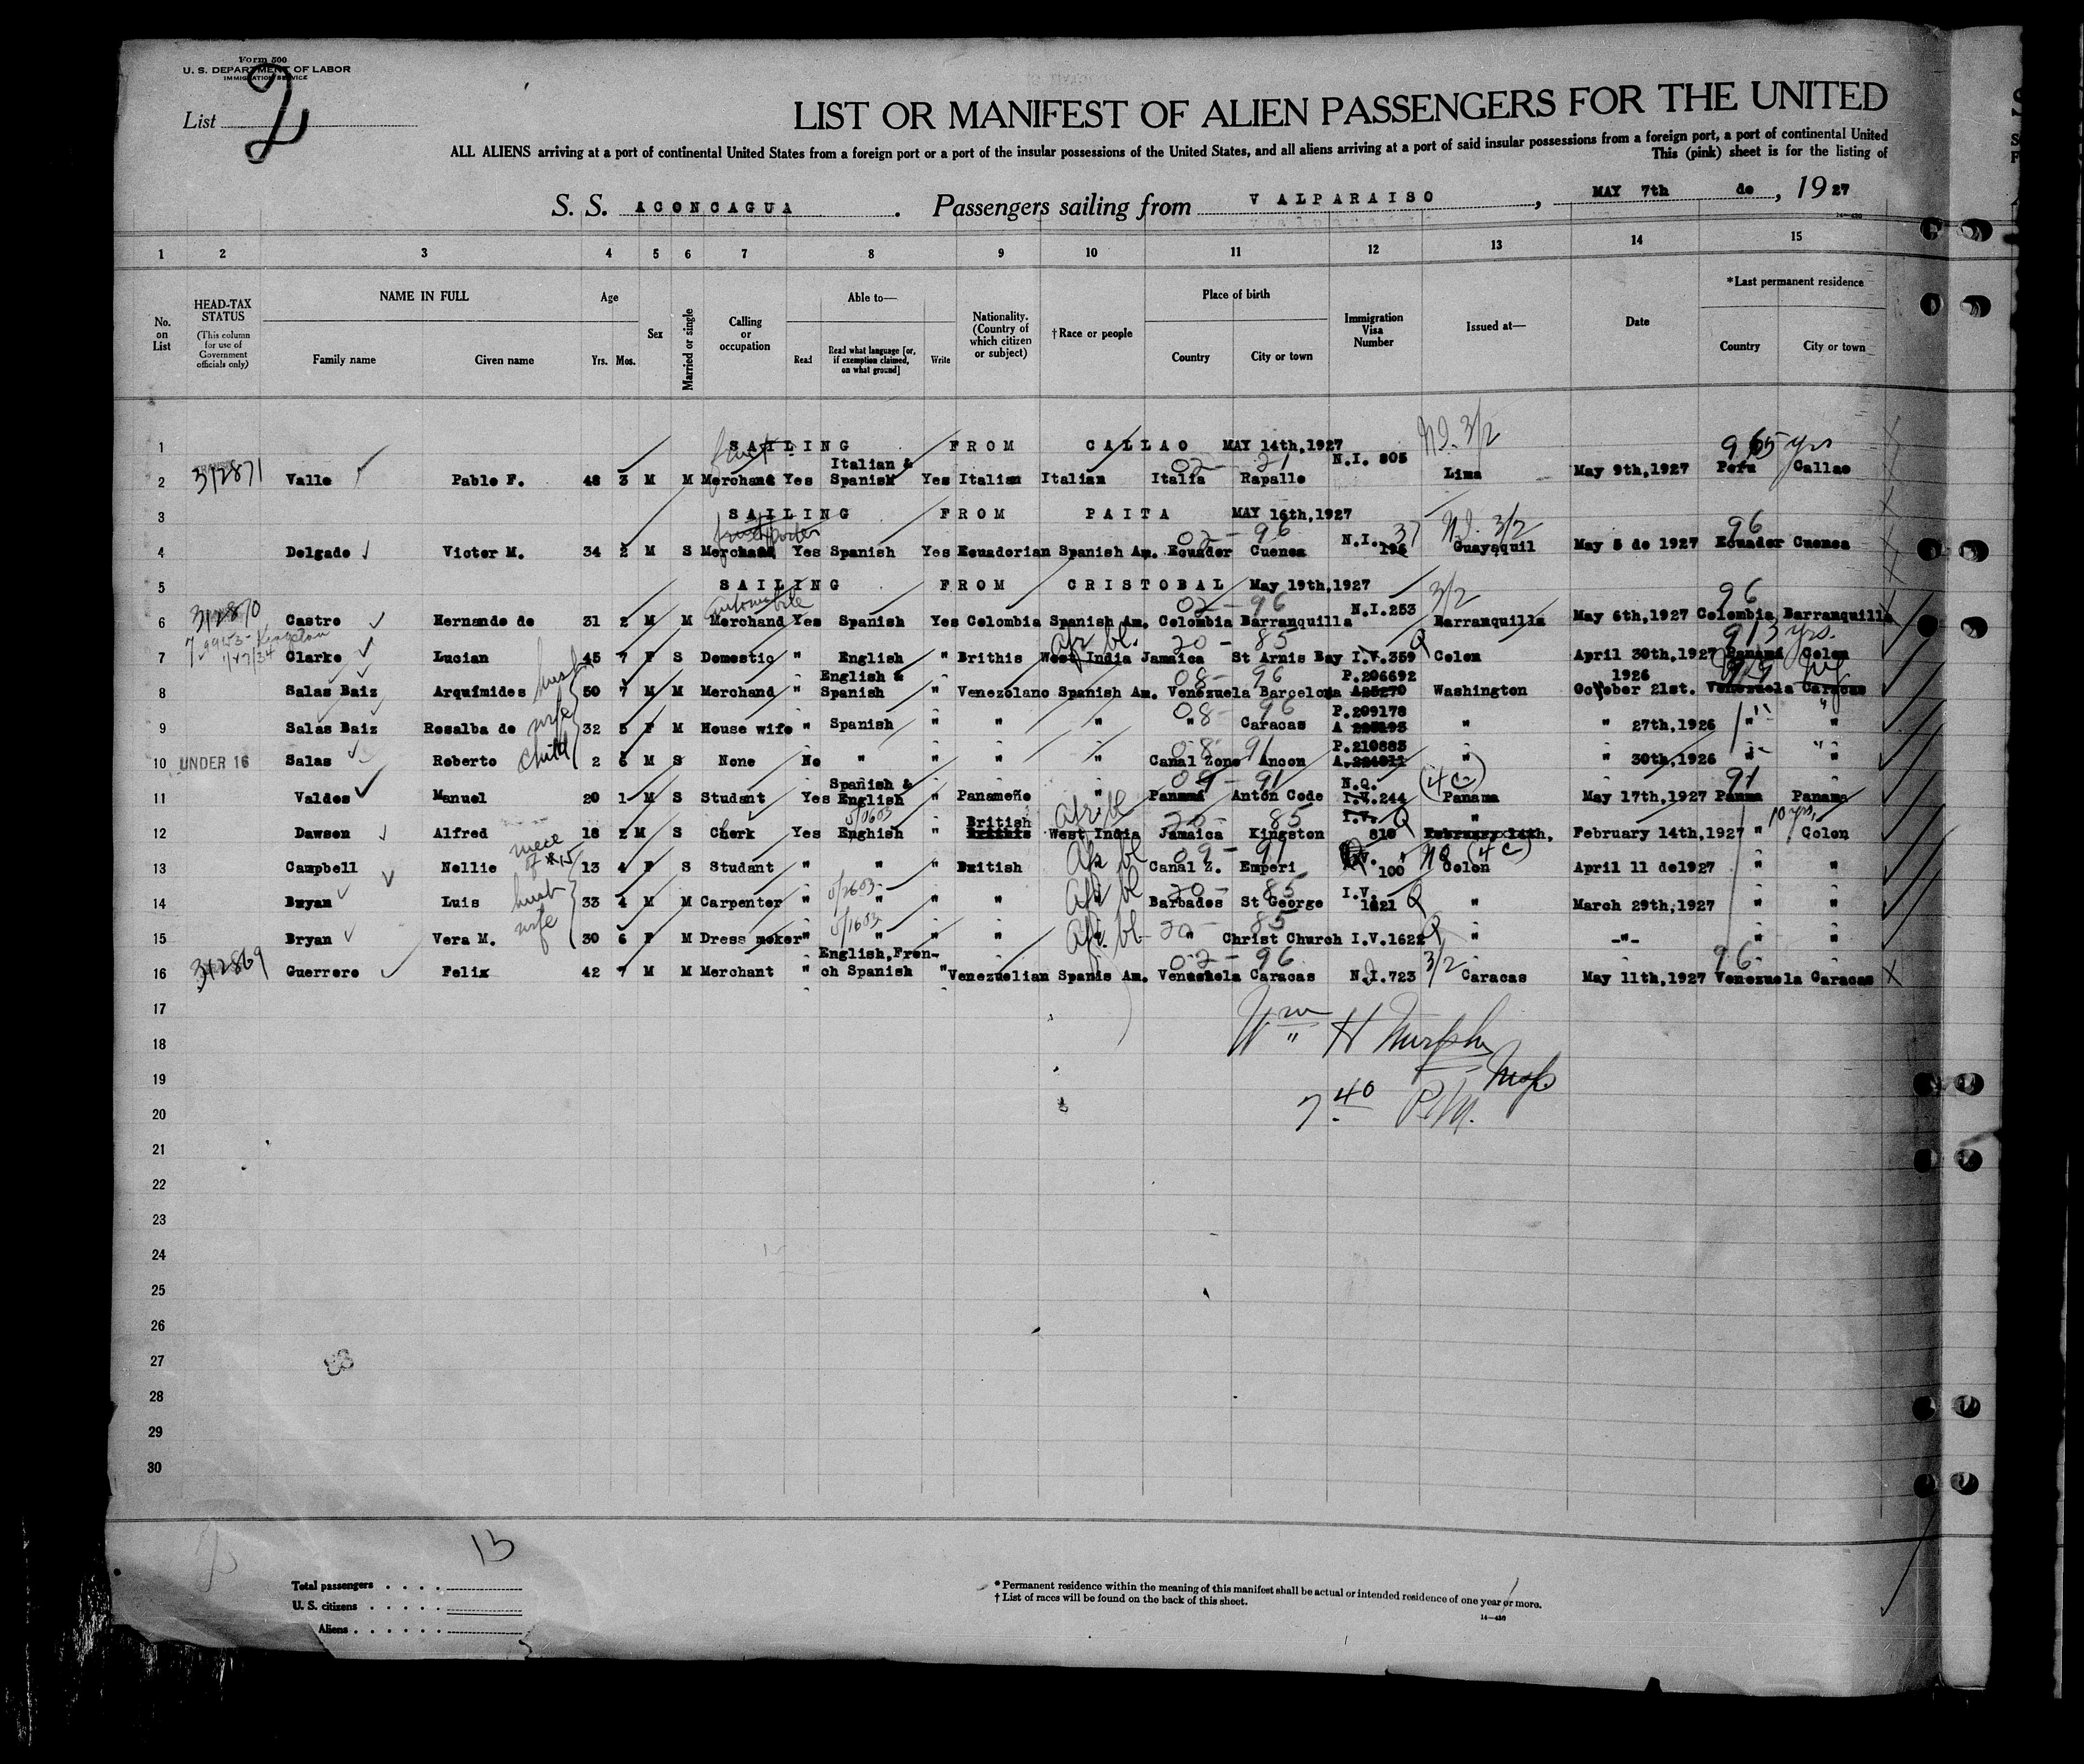 Form 500
U. S. DEPARTMENT OF LABOR
IMMIGRATION SERVICE
List 2
LIST OR MANIFEST OF ALIEN PASSENGERS FOR THE UNITED
ALL ALIENS arriving at a port of continental United States from a foreign port or a port of the insular possessions of the United States, and all aliens arriving at a port of said insular possessions from a foreign port, a port of continental United
This (pink) sheet is for the listing of
S. S. ACONCAGUA. Passengers sailing from VALPARAISO, MAY 7th de, 1927
1 2 3 4 5 6 7 8 9 10 11 12 13 14 15
HEAD-TAX STATUS (This column for use of Government officials only)
No. on List
NAME IN FULL
Family name Given name
Age
Yrs. Mos.
Sex
Married or single
Calling or occupation
Able to—
Read Read what language [or, if exemption claimed, on what ground] Write
Nationality. (Country of which citizen or subject)
†Race or people
Place of birth
Country City or town
Immigration Visa Number
Issued at—
Date
*Last permanent residence
Country City or town
1 SAILING FROM CALLAO MAY 14th,1927 N.I. 3/2 5 yrs
2 312871 Valle Pablo F. 48 3 M M Merchand Yes Italian & Spanish Yes Italian Italian Italia Rapallo N.I. 805 Lima May 9th,1927 Peru Callao
02 - 21
3 SAILING FROM PAITA MAY 16th,1927
02 - 96 37 N.I. 3/2 96
4 Delgado Victor M. 34 2 M S Merchand Yes Spanish Yes Ecuadorian Spanish Am. Ecuador Cuenca N.I. Guayaquil May 5 de 1927 Ecuador Cuenca
5 SAILING FROM CRISTOBAL May 19th,1927
automobile 02 - 96 3/2 96
6 312870 Castro Hernando de 31 2 M M Merchand Yes Spanish Yes Colombia Spanish Am. Colombia Barranquilla N.I.253 Barranquilla May 6th,1927 Colombia Barranquilla
Kingston Afr bl. 20 - 85 Q yrs.
7 Clarke Lucian 45 7 F S Domestic " English " Brithis West India Jamaica St Arnis Bay I.V.359 Colon April 30th,1927 Panama Colon
08 - 96
8 Salas Baiz Arquimides husb 50 7 M M Merchand " English & Spanish " Venezolano Spanish Am. Venezuela Barcelona P.206692 A25270 Washington October 21st. 1926 Venezuela Caracas
08 - 96
9 Salas Baiz Rosalba de wife 32 5 F M House wife " Spanish " " " " Caracas P.209178 A " " 27th,1926 " "
08 - 91
10 UNDER 16 Salas Roberto child 2 6 M S None No " " " " Canal Zone Ancon P.210883 " " 30th,1926 " "
09 - 91 (4c) 91
11 Valdes Manuel 20 1 M S Studant Yes Spanish & English " Panameño " Panamá Anton Code N.Q. I.V.244 Panama May 17th,1927 Panma Panama
5/0603 Afr bl 20 - 85 Q 10 yrs.
12 Dawson Alfred 18 2 M S Clerk Yes Enghish " British Brithis West India Jamaica Kingston I.V. 810 " February 14th, February 14th,1927 " Colon
niece of #15 Afr bl 09 - 91 NQ (4c)
13 Campbell Nellie 13 4 F S Studant " " " British Canal Z. Emperi I.V. 100 Colon April 11 de1927 " "
5/2603 Afr bl 20 - 85 Q
14 Bryan Luis husb 33 4 M M Carpenter " " " " Barbades St George I.V. 1621 " March 29th,1927 " "
5/1603 Afr. bl 20 - 85 Q
15 Bryan Vera M. wife 30 6 F M Dress moker " " " " " Christ Church I.V.1622 " -"- " "
02 - 96 3/2 96
16 312869 Guerrero Felix 42 7 M M Merchant " English,Fren-ch Spanish " Venezuelian Spanis Am. Venesuela Caracas N.I.723 Caracas May 11th,1927 Venezuela Caracas
17
Wm H Murphy
18
19 Insp.
20 7 40 P.M.
21
22
23
24
25
26
27
28
29
30
13
Total passengers
U. S. citizens
Aliens
* Permanent residence within the meaning of this manifest shall be actual or intended residence of one year or more.
† List of races will be found on the back of this sheet.
14—430